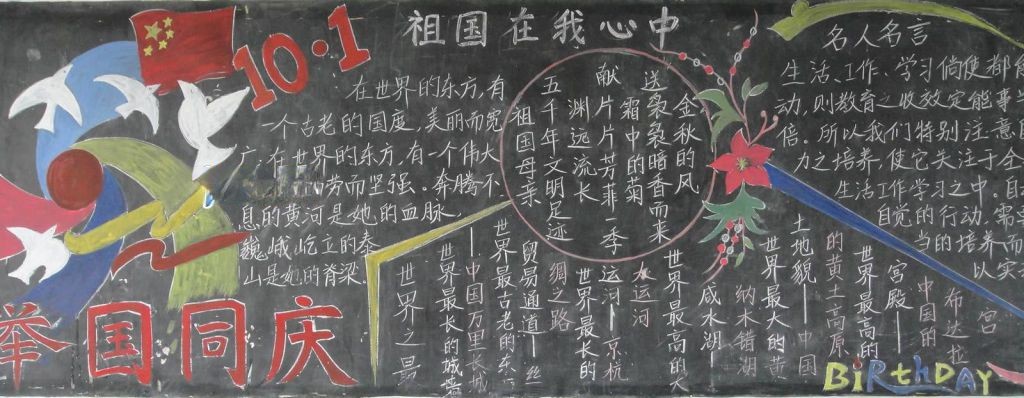 10·1
祖国在我心中
在世界的东方,有
一个古老的国度,美丽而宽
广,在世界的东方,有一个伟大
劳而坚强。奔腾不
息的黄河是她的血脉,
巍峨屹立的泰
山是她的脊梁。
举国同庆
金秋的风
送袅袅暗香而来
霜中的菊
献片片芳菲一季
渊远流长
五千年文明足迹
祖国母亲
世界之最
世界最长的城墙
——中国万里长城
世界最古老的东
贸易通道——丝
绸之路
世界最长的
运河——京杭
大运河
世界最高的大
咸水湖——
纳木错湖
世界最大的黄
土地貌——中国
的黄土高原
世界最高的
宫殿——
中国的
布达拉
宫
名人名言
生活、工作、学习倘使都能
动,则教育之收效定能事半
倍。所以我们特别注意自
力之培养,使它关注于全
生活工作学习之中。自
自觉的行动,需
当的培养而
以实
BiRthDAy